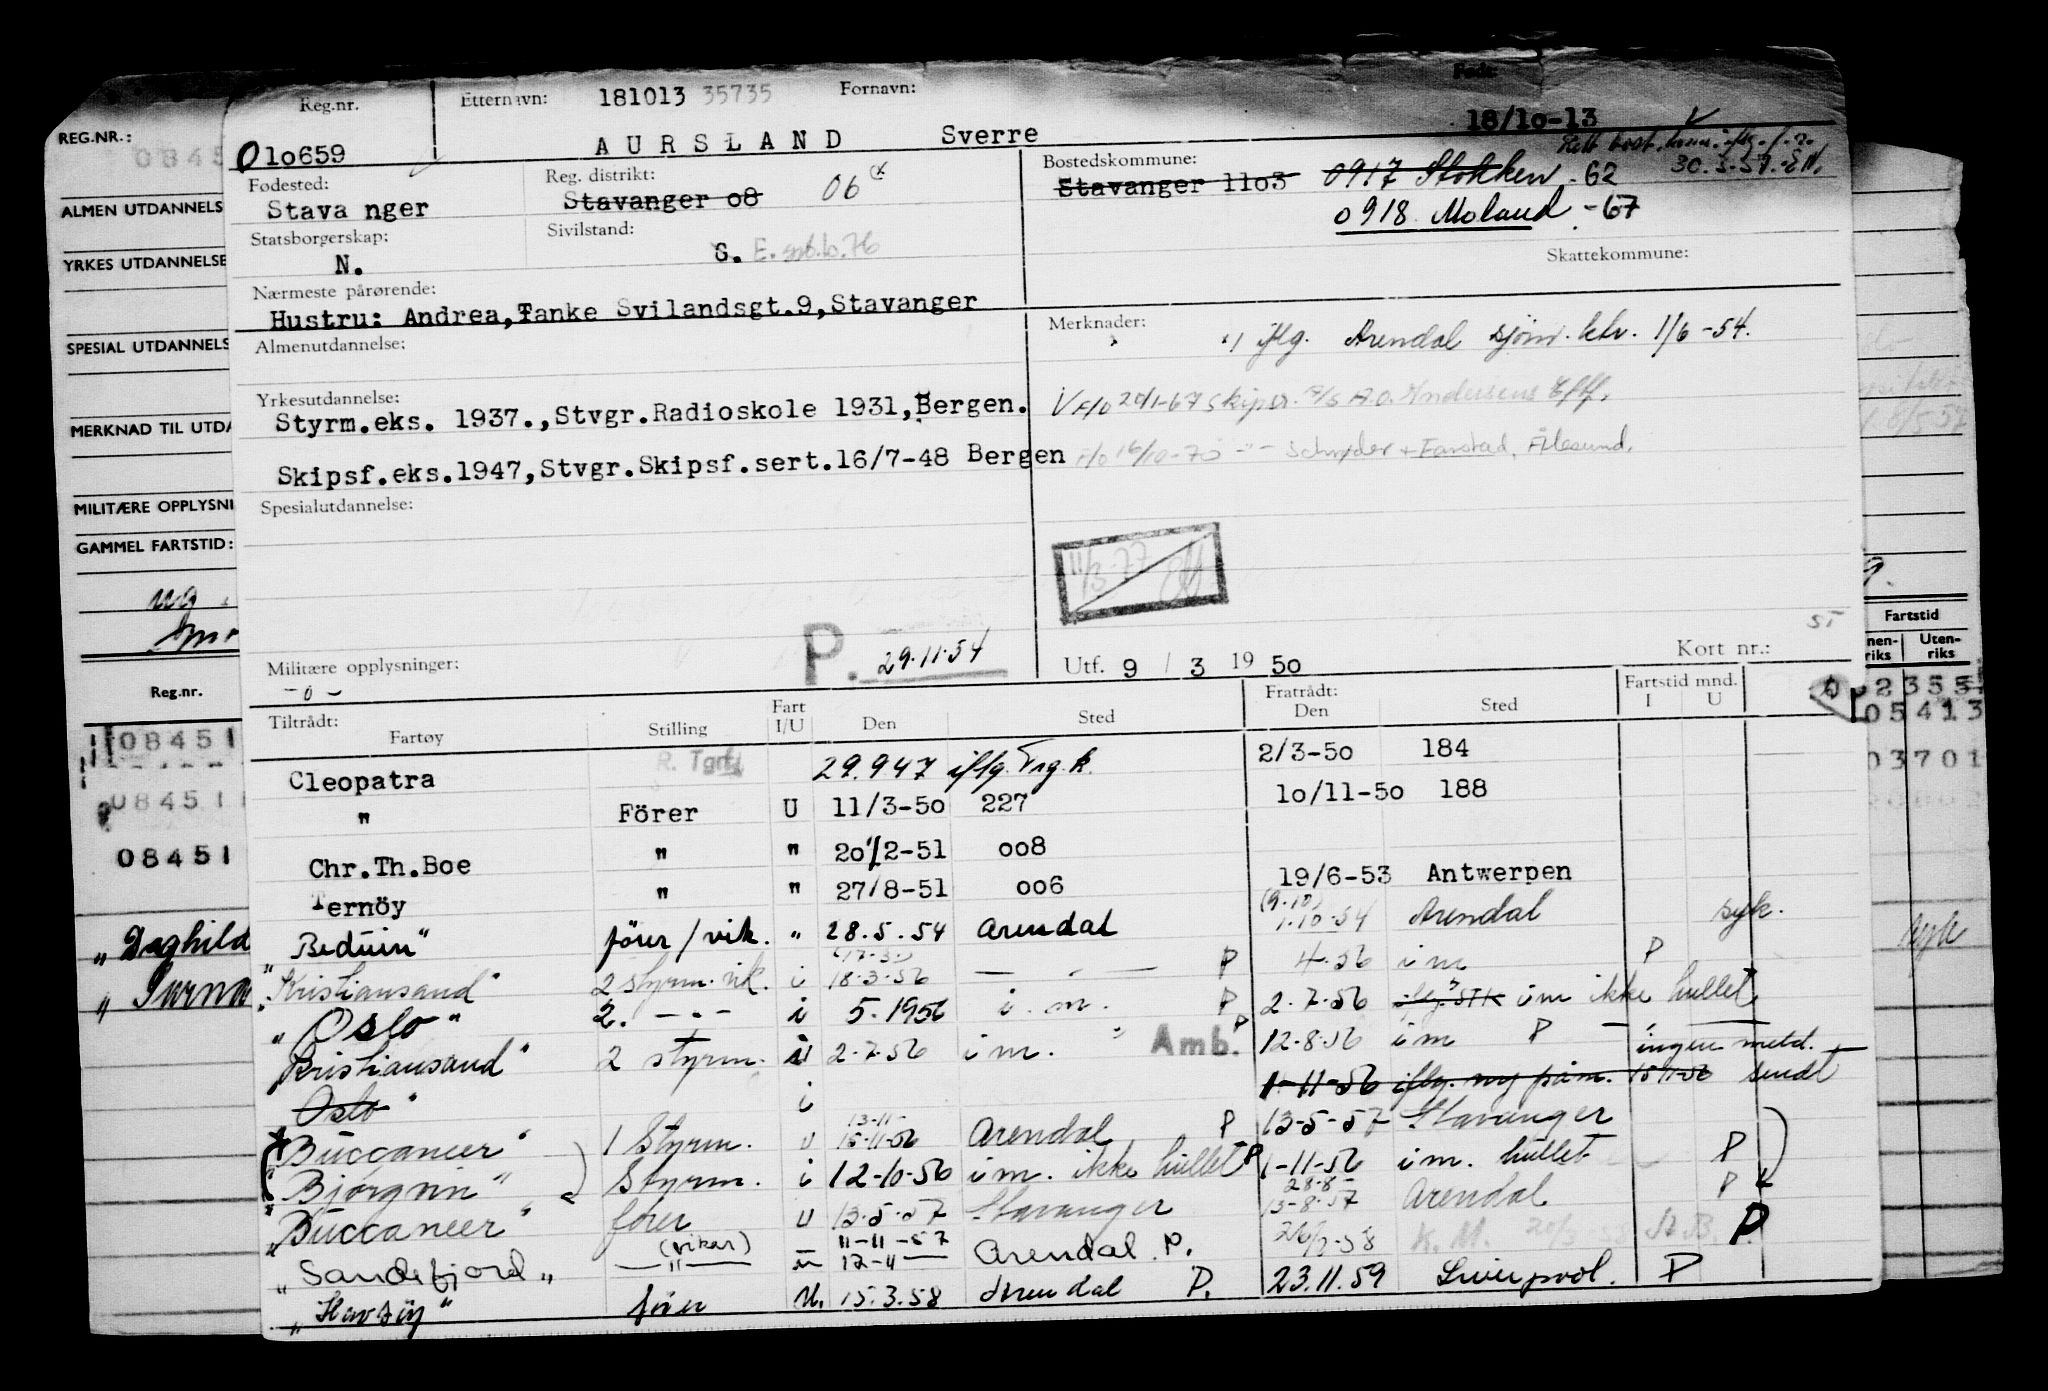 Reg.nr. Etternavn: 181013 35735 Fornavn: Født
REG.NR.: 0845
010659 AURSLAND Sverre 18/10-13
Fødested: Reg. distrikt: Bostedskommune:
Stavanger Stavanger 08 06 Stavanger 1103 0917 Stokken - 62 30.5.57.
0918 Moland - 67
ALMEN UTDANNELS
Statsborgerskap: Sivilstand: Skattekommune:
N. G. E.
YRKES UTDANNELSE
Nærmeste pårørende:
Hustru: Andrea, Tanke Svilandsgt.9, Stavanger
SPESIAL UTDANNELS
Almenutdannelse: Merknader: iflg. Arendal sjøm. ktr. 1/6-54.
Yrkesutdannelse:
Styrm.eks. 1937.,Stvgr.Radioskole 1931,Bergen.
F/O 20/1-67 skipsr.
MERKNAD TIL UTDA
Skipsf.eks.1947,Stvgr.Skipsf.sert.16/7-48 Bergen
F/O 16/10-70 - " - Schrøder + Fanstad, Ålesund.
Spesialutdannelse:
MILITÆRE OPPLYSNI
GAMMEL FARTSTID:
11/3-77
P. 29.11.54
Militære opplysninger: Utf. 9 / 3 19 50 Kort nr.:
- 0 -
Fartstid
Uten-
riks riks
Reg.nr.
Tiltrådt: Fratrådt: Fartstid mnd.
Fartøy Stilling Fart I/U Den Sted Den Sted I U
Cleopatra R. Tgrf. 29.947 iflg. Trg.k. 2/3-50 184
" Förer U 11/3-50 227 10/11-50 188
Chr.Th.Boe " " 20/2-51 008
Ternöy " " 27/8-51 006 19/6-53 Antwerpen
"Beduin" förer/vik. " 28.5.54 Arendal (9.10) 1.10.54 Arendal syk.
"Kristiansand" 2 styrm. vik. i (17.3.) 18.3.56 — " — P 4.56 i m P
"Oslo" 2. — " — i 5.1956 i m. P 2.7.56 i m ikke hullet
"Kristiansand" 2 styrm. i 2.7.56 i m. " Amb. P 12.8.56 i m P — ingen meld.
Oslo" i 1-11-56 iflg. ny påm. 15/11-56 sendt
"Buccaneer" 1 Styrm. u 13-11 15-11-56 Arendal P 13-5-57 Stavanger
"Bjørgvin" Styrm. i 12-10-56 i m. ikke hullet P 1-11-56 i m. hullet P
"Buccaneer" förer u 13.5.57 Stavanger 28-8- 13-8-57 Arendal P
"Sandefjord" (vikar) — " — 11-11-57 12-11- Arendal P. 26/2-58 K.M. P.
"Havtøy" förer U. 15.3.58 Arendal P. 23.11.59 Liverpool. P
08451
08451
08451
"Daghild
05413
03701